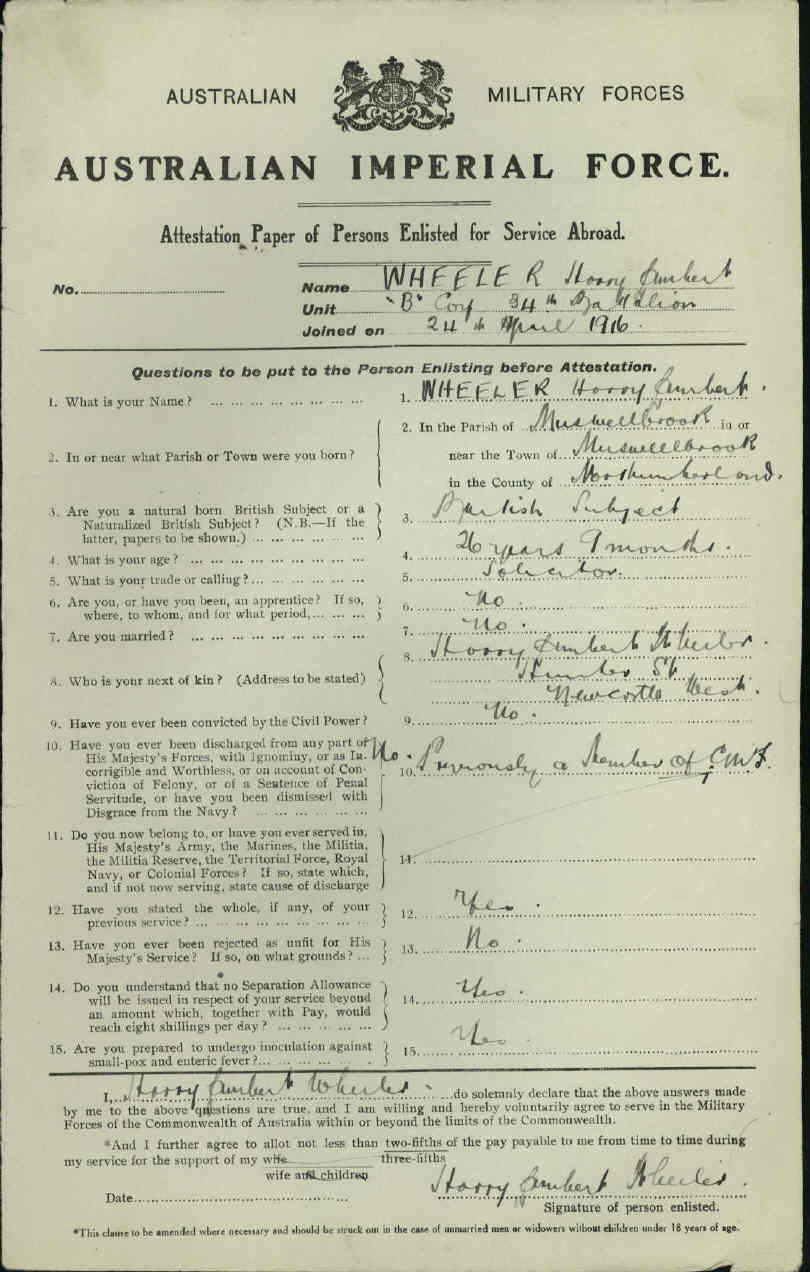 AUSTRALIAN MILITARY FORCES
AUSTRALIAN IMPERIAL FORCE.
Attestation Paper of Persons Enlisted for Service Abroad.
No. Name WHEELER Harry
Unit "B" Coy 34th Battalion
Joined on 24th April 1916.
Questions to be put to the Person Enlisting before Attestation.
1. What is your Name? ... 1. WHEELER Harry
2. In or near what Parish or Town were you born? 2. In the Parish of Muswellbrook in or
near the Town of Muswellbrook
in the County of Northumberland.
3. Are you a natural born British Subject or a 3. British Subject
Naturalized British Subject? (N.B.—If the
latter, papers to be shown.) ...
4. What is your age? ... 4. 26 years 9 months.
5. What is your trade or calling? ... 5. Solicitor.
6. Are you, or have you been, an apprentice? If so, 6. No.
where, to whom, and for what period, ...
7. Are you married? ... 7. No.
8. Harry Wheeler.
8. Who is your next of kin? (Address to be stated) Hunter St.
Newcastle West.
9. Have you ever been convicted by the Civil Power? 9. No.
10. Have you ever been discharged from any part of No.
His Majesty's Forces, with Ignominy, or as In- 10. Previously a Member of C.M.F.
corrigible and Worthless, or on account of Con-
viction of Felony, or of a Sentence of Penal
Servitude, or have you been dismissed with
Disgrace from the Navy? ...
11. Do you now belong to, or have you ever served in, 11.
His Majesty's Army, the Marines, the Militia,
the Militia Reserve, the Territorial Force, Royal
Navy, or Colonial Forces? If so, state which,
and if not now serving, state cause of discharge
12. Have you stated the whole, if any, of your 12. Yes.
previous service? ...
13. Have you ever been rejected as unfit for His 13. No.
Majesty's Service? If so, on what grounds? ...
14. Do you understand that no Separation Allowance 14. Yes.
will be issued in respect of your service beyond
an amount which, together with Pay, would
reach eight shillings per day? ...
15. Are you prepared to undergo inoculation against 15. Yes
small-pox and enteric fever? ...
I, Harry Wheeler do solemnly declare that the above answers made
by me to the above questions are true, and I am willing and hereby voluntarily agree to serve in the Military
Forces of the Commonwealth of Australia within or beyond the limits of the Commonwealth.
*And I further agree to allot not less than two-fifths of the pay payable to me from time to time during
three-fifths
my service for the support of my wife
wife and children
Harry Wheeler.
Date
Signature of person enlisted.
*This clause to be amended where necessary and should be struck out in the case of unmarried men or widowers without children under 18 years of age.